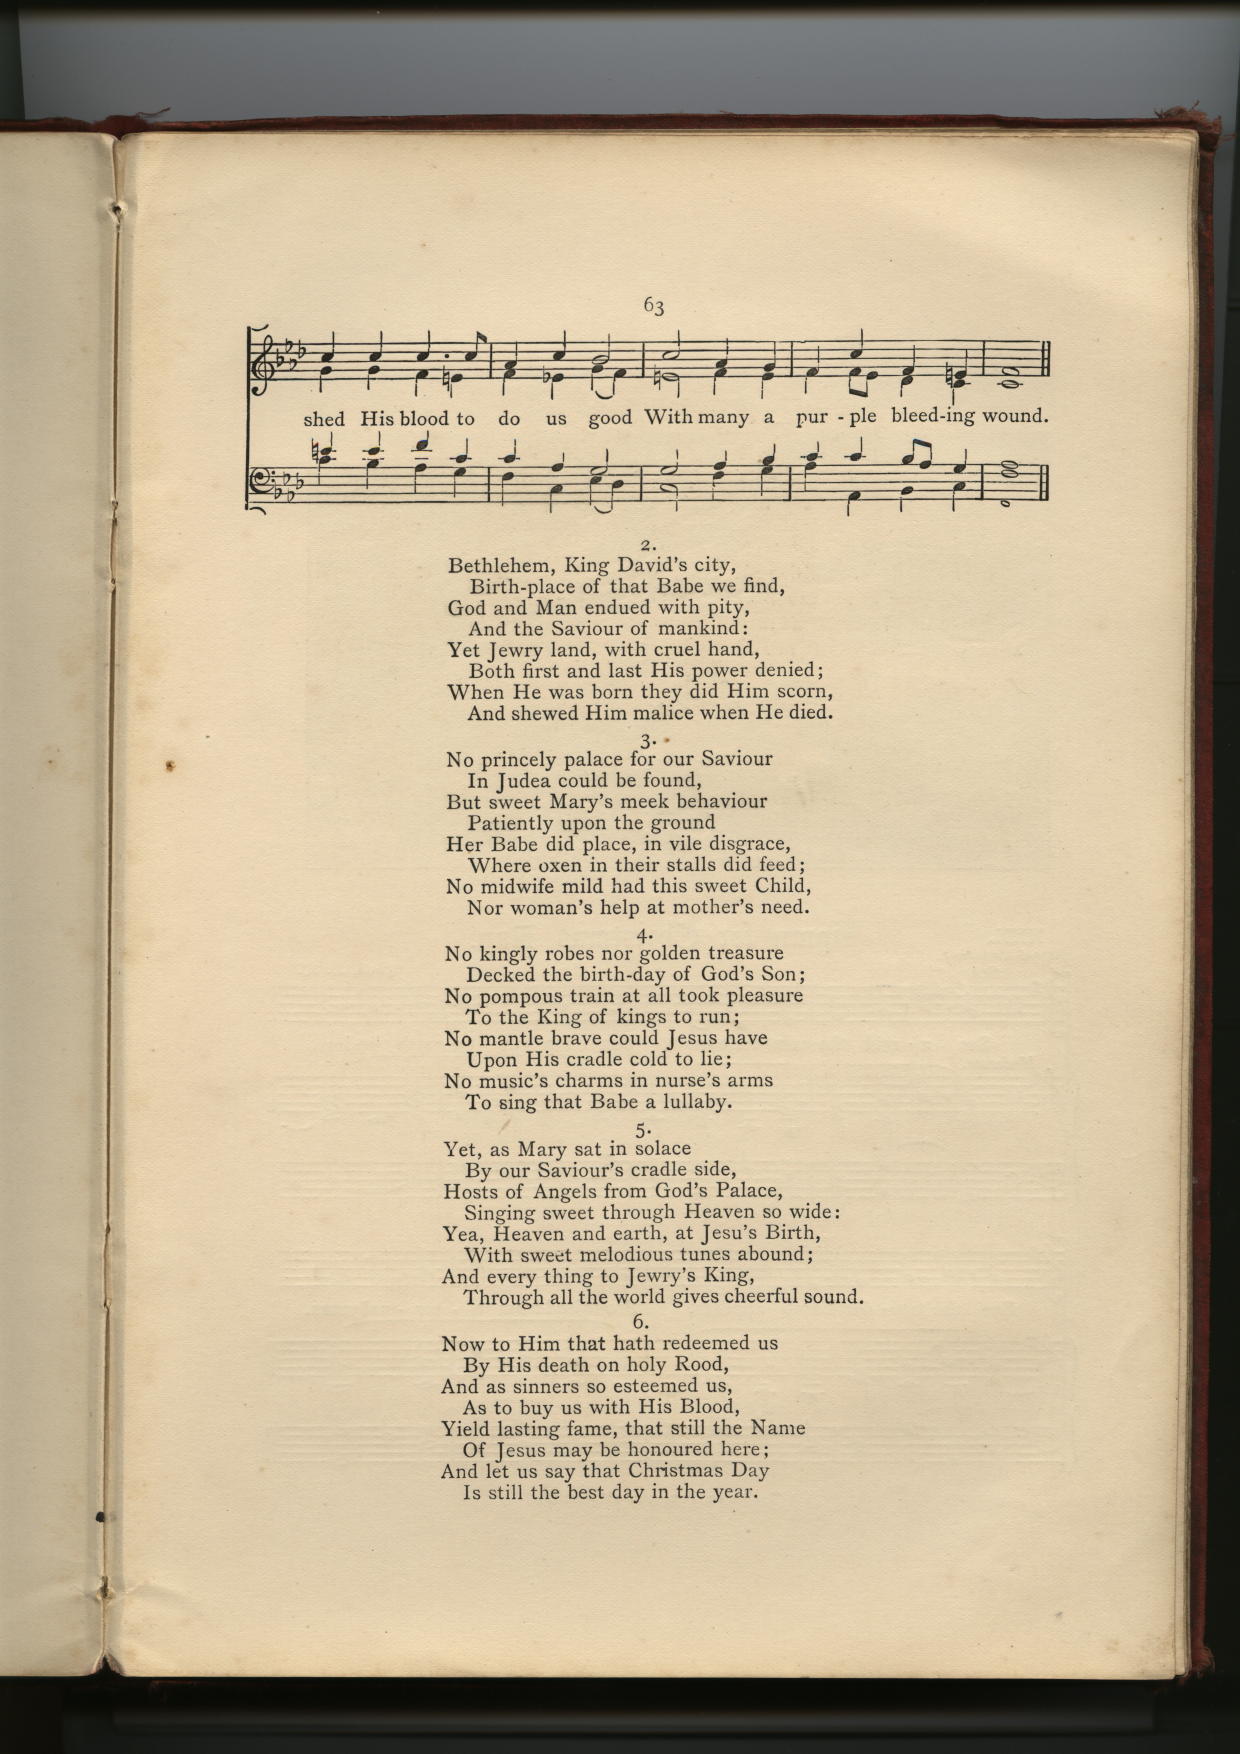 63
shed His blood to do us good With many a pur - ple bleed-ing wound.
2.
Bethlehem, King David's city,
Birth-place of that Babe we find,
God and Man endued with pity,
And the Saviour of mankind:
Yet Jewry land, with cruel hand,
Both first and last His power denied;
When He was born they did Him scorn,
And shewed Him malice when He died.
3.
No princely palace for our Saviour
In Judea could be found,
But sweet Mary's meek behaviour
Patiently upon the ground
Her Babe did place, in vile disgrace,
Where oxen in their stalls did feed;
No midwife mild had this sweet Child,
Nor woman's help at mother's need.
4.
No kingly robes nor golden treasure
Decked the birth-day of God's Son;
No pompous train at all took pleasure
To the King of kings to run;
No mantle brave could Jesus have
Upon His cradle cold to lie;
No music's charms in nurse's arms
To sing that Babe a lullaby.
5.
Yet, as Mary sat in solace
By our Saviour's cradle side,
Hosts of Angels from God's Palace,
Singing sweet through Heaven so wide:
Yea, Heaven and earth, at Jesu's Birth,
With sweet melodious tunes abound;
And every thing to Jewry's King,
Through all the world gives cheerful sound.
6.
Now to Him that hath redeemed us
By His death on holy Rood,
And as sinners so esteemed us,
As to buy us with His Blood,
Yield lasting fame, that still the Name
Of Jesus may be honoured here;
And let us say that Christmas Day
Is still the best day in the year.